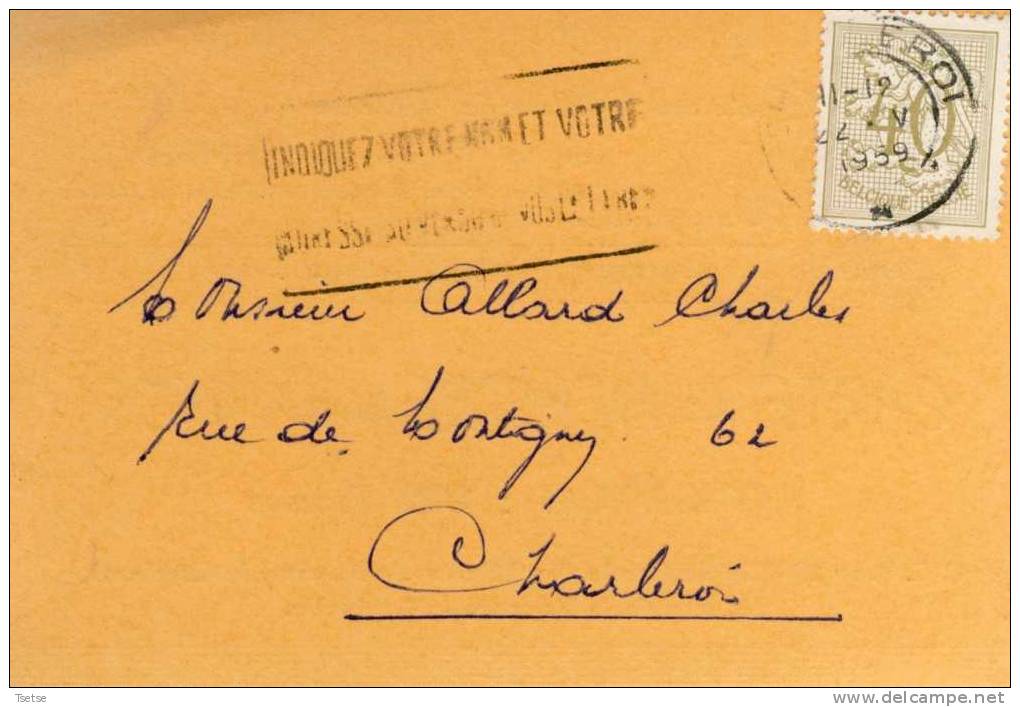 INDIQUEZ VOTRE NOM ET VOTRE
ADRESSE AU VERSO DE VOS LETTRES
EROI
11-12
22 . V
1959
40
BELGIQUE BELGIE
Monsieur Allard Charles
Rue de Montigny 62
Charleroi
Tsetse
www.delcampe.net